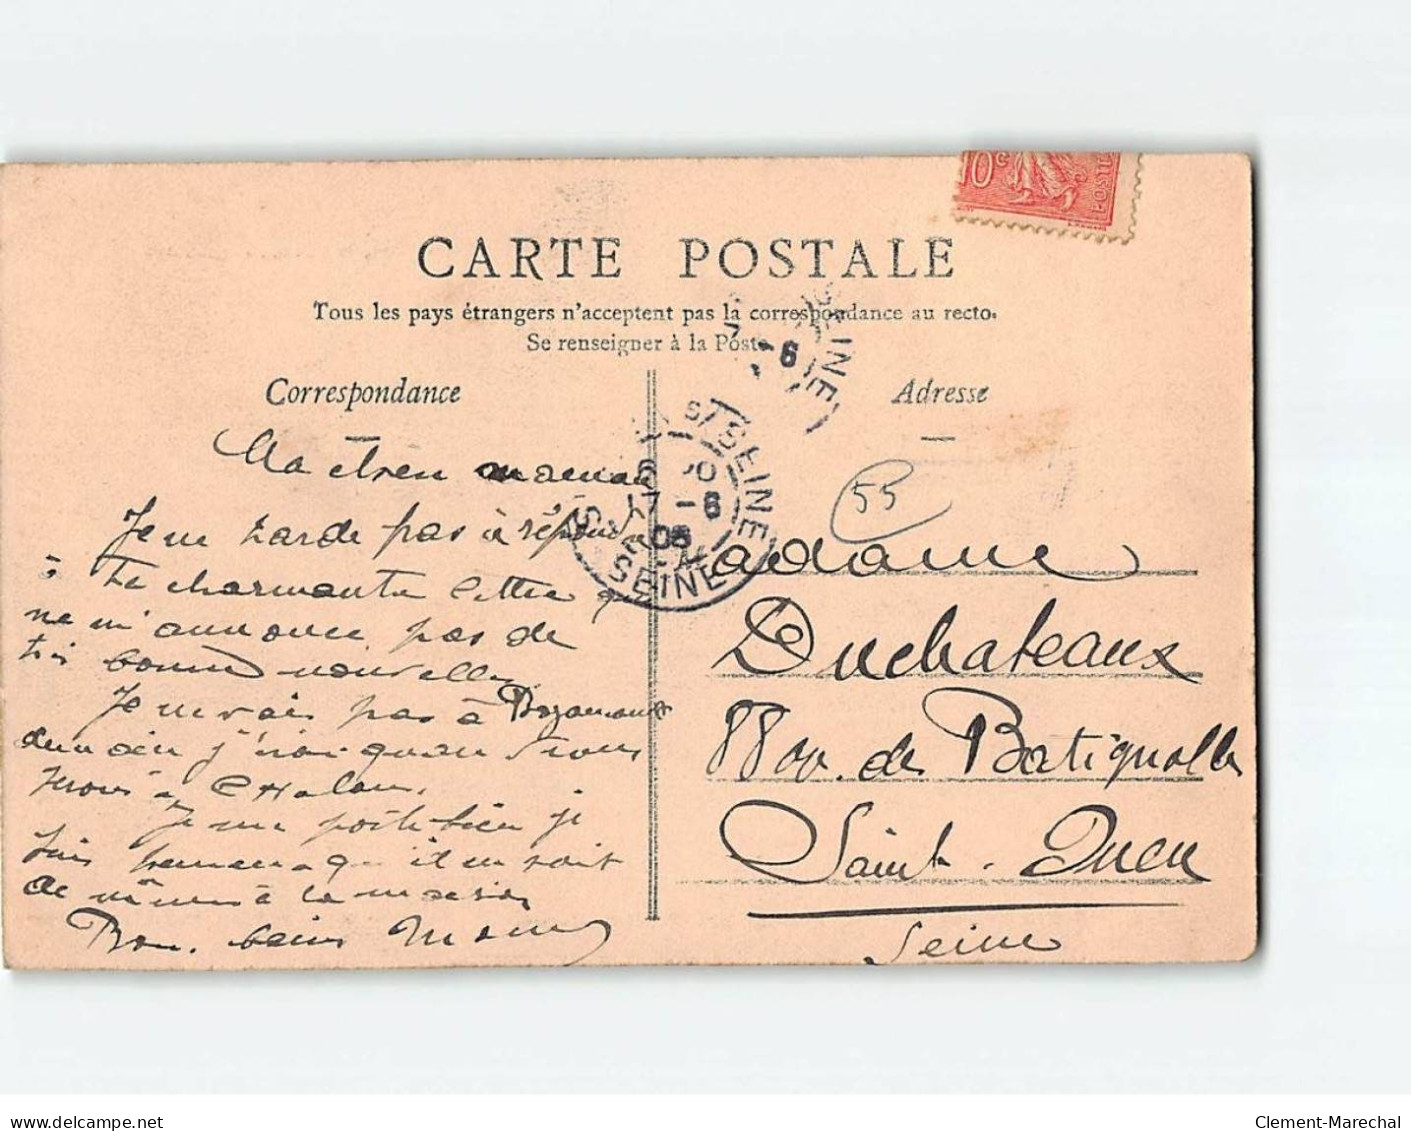 10c
POSTE
CARTE POSTALE
Tous les pays étrangers n'acceptent pas la correspondance au recto.
Se renseigner à la Poste
SEINE
-6
Correspondance
Adresse
S/ SEINE
17 -6
06
SEINE
55
Ma chère maman
Je ne tarde pas à répondre
à ta charmante lettre q
ne m'annonce pas de
très bonnes nouvelles
Je ne vais pas à
j'irai quand
serons à Chalons.
Je me porte bien je
qu'il en soit
de même à la maison
Bons baisers
Madame
Duchateaux
88 av. des Batignolles
Saint-Ouen
Seine
delcampe.net
Clement-Marechal